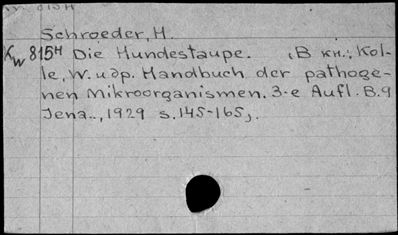 Schroeder, H.
Kw 815H Die Hundestaupe. (В кн.: Kol-
le, W. и др. Handbuch der pathoge-
nen Mikroorganismen. 3-e Aufl. B. 9
Jena.., 1929 s. 145-165).